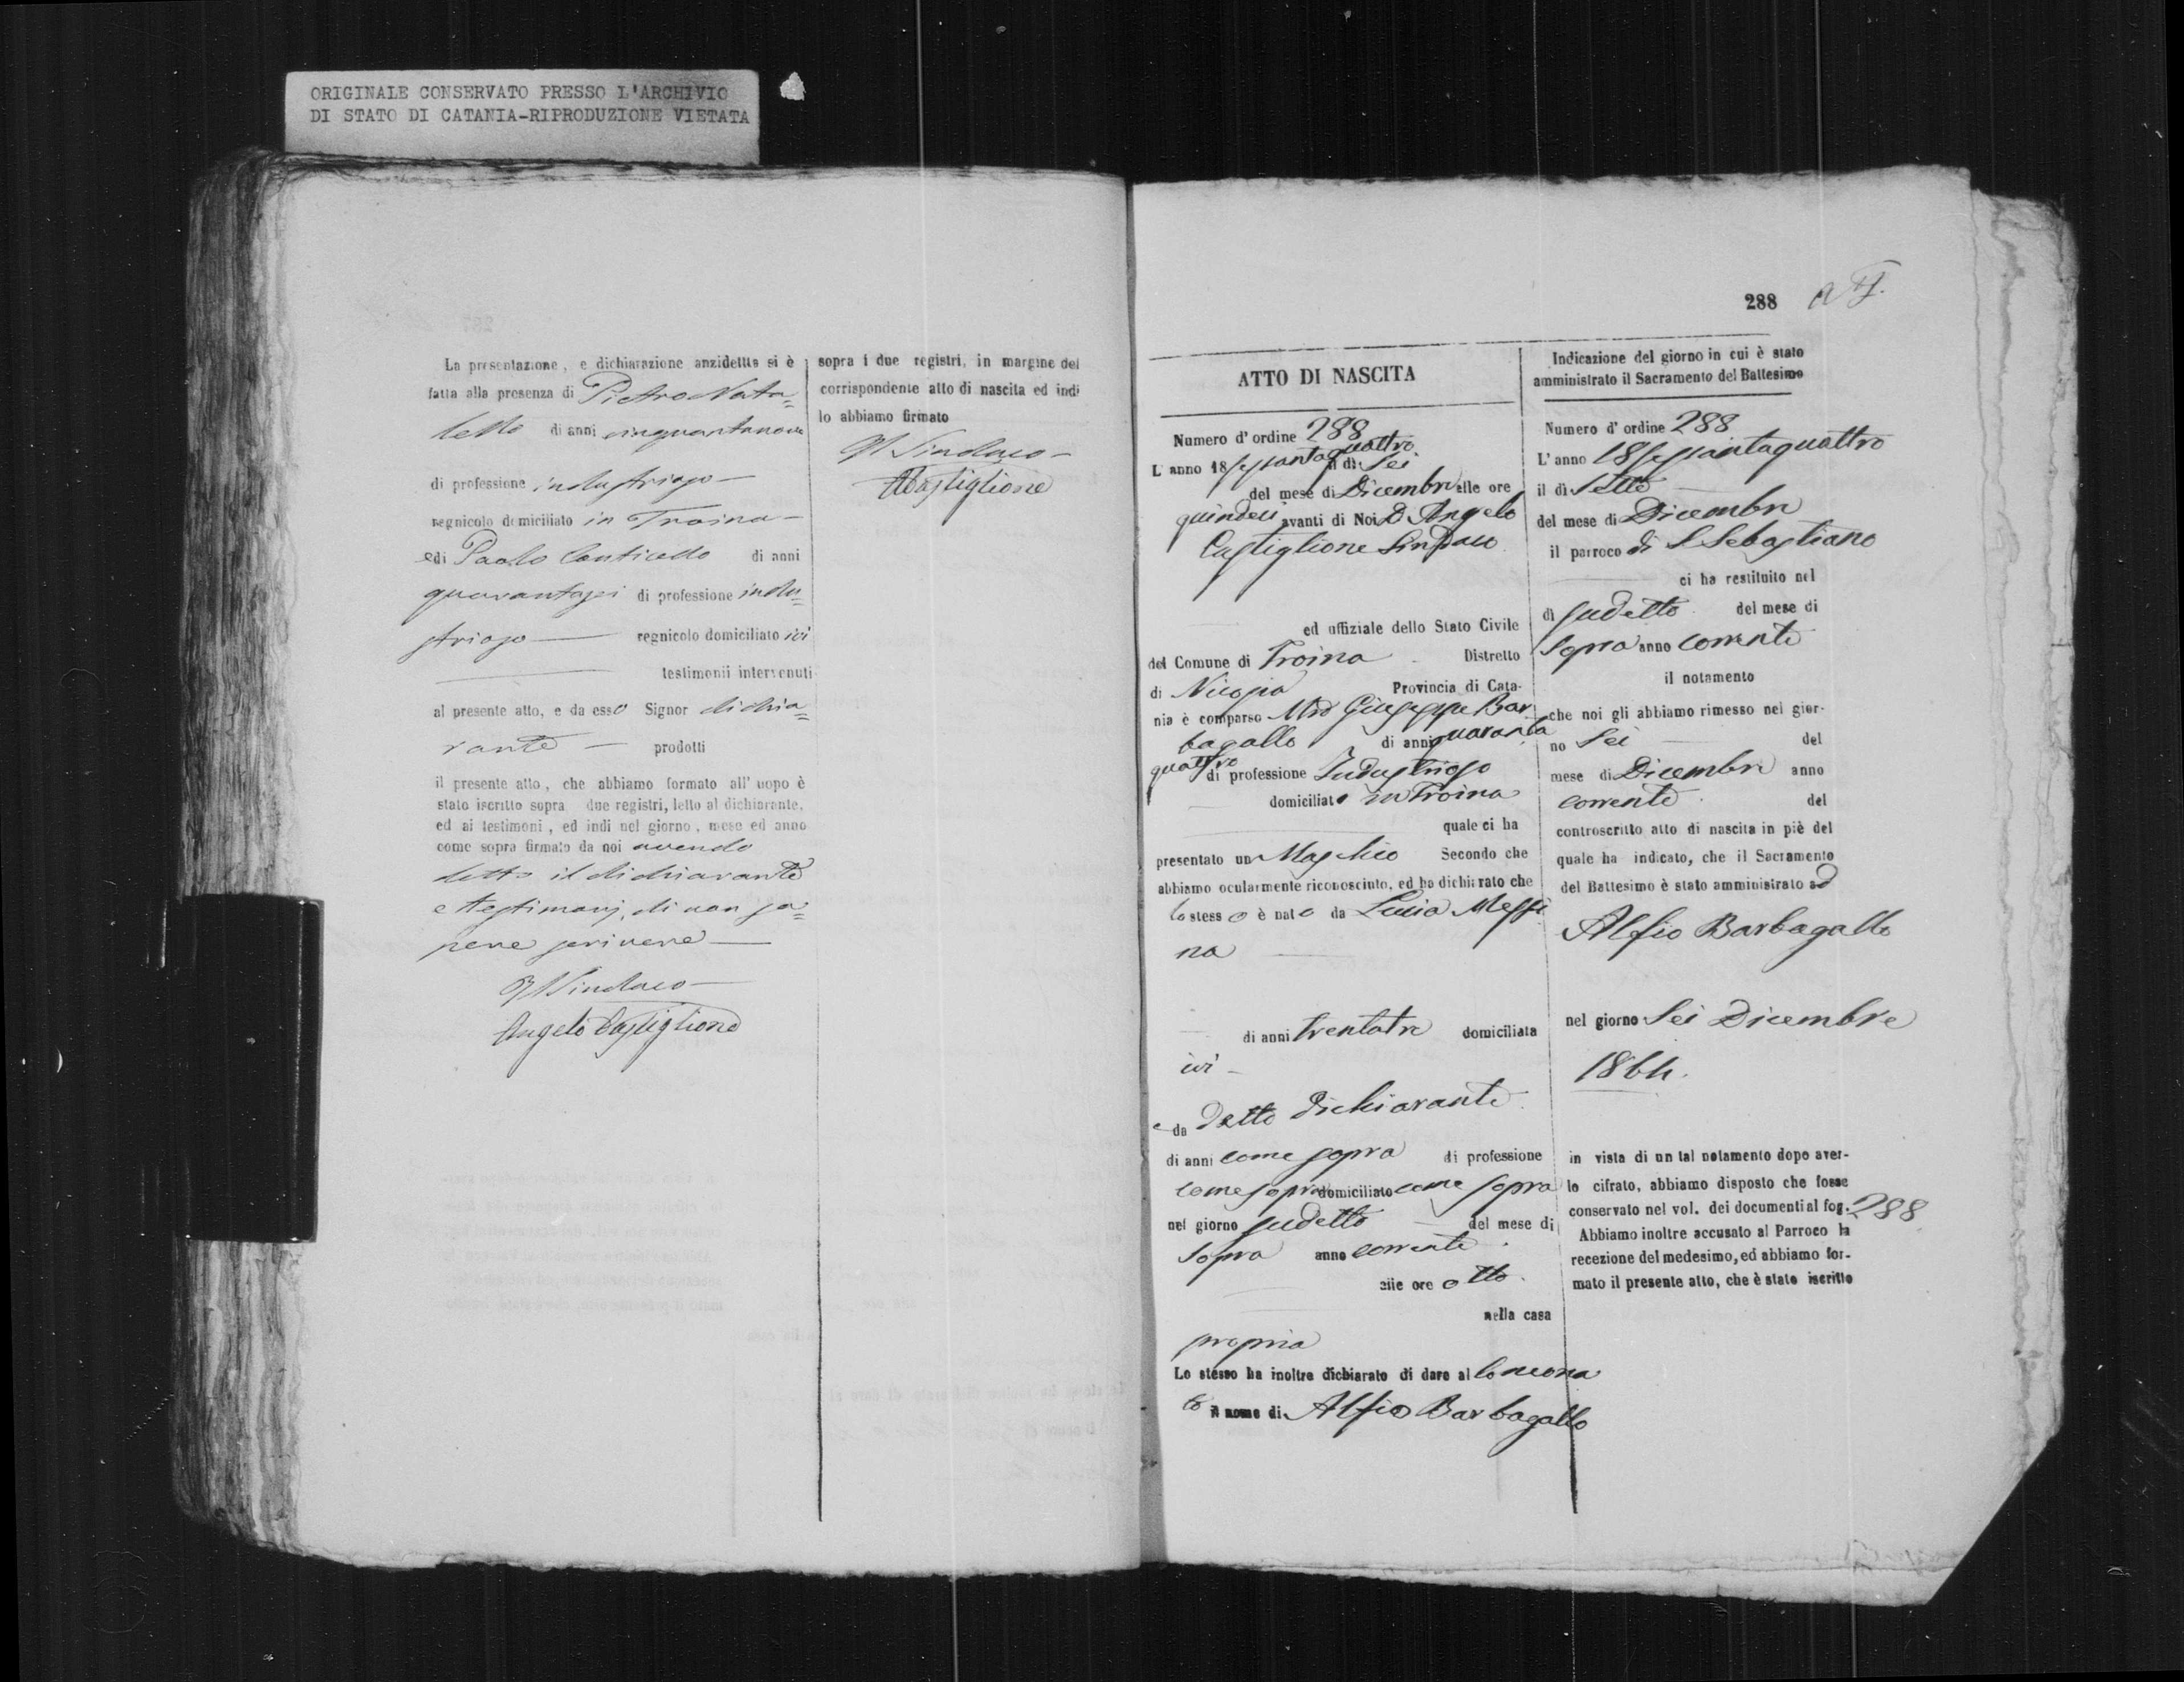 ORIGINALE CONSERVATO PRESSO L'ARCHIVIO
DI STATO DI CATANIA-RIPRODUZIONE VIETATA
La presentazione, e dichiarazione anzidetta si è
fatta alla presenza di Pietro Nata=
letto di anni cinquantanove
di professione industrioso
regnicolo domiciliato in Troina
e di Paolo Conticello di anni
quarantasei di professione indu=
strioso regnicolo domiciliato ivi
testimonii intervenuti
al presente atto, e da esso Signor dichia=
rante prodotti
il presente atto, che abbiamo formato all' uopo è
stato iscritto sopra due registri, letto al dichiarante,
ed ai testimoni, ed indi nel giorno, mese ed anno
come sopra firmato da noi avendo
detto il dichiarante
e testimonj di non sa=
pere scrivere
Il Sindaco
Angelo Castiglione
sopra i due registri, in margine del
corrispondente atto di nascita ed indi
lo abbiamo firmato
Il Sindaco
ACastiglione
288
ATTO DI NASCITA
Numero d' ordine 288
L' anno 18sessantaquattro il dì Sei
del mese di Dicembre alle ore
quindeci avanti di Noi D Angelo
Castiglione Sindaco
ed uffiziale dello Stato Civile
del Comune di Troina Distretto
di Nicosia Provincia di Cata-
nia è comparso Mro Giuseppe Bar
bagallo di anni quaranta
quattro di professione Industrioso
domiciliato in Troina
quale ci ha
presentato un Maschio Secondo che
abbiamo ocularmente riconosciuto, ed ha dichiarato che
lo stesso è nato da Lucia Messi
na
di anni trentatre domiciliata
ivi
e da Detto dichiarante
di anni come sopra di professione
come sopra domiciliato come sopra
nel giorno sudetto del mese di
Sopra anno corrente
alle ore otto
nella casa
propria
Lo stesso ha inoltre dichiarato di dare al lo neona
to il nome di Alfio Barbagallo
Indicazione del giorno in cui è stato
amministrato il Sacramento del Battesimo
Numero d' ordine 288
L' anno 18sessantaquattro
il dì Sette
del mese di Dicembre
il parroco di S Sebastiano
ci ha restituito nel
dì sudetto del mese di
Sopra anno corrente
il notamento
che noi gli abbiamo rimesso nel gior-
no Sei del
mese di Dicembre anno
corrente del
controscritto atto di nascita in piè del
quale ha indicato, che il Sacramento
del Battesimo è stato amministrato ad
Alfio Barbagallo
nel giorno Sei Dicembre
1864.
in vista di un tal notamento dopo aver-
lo cifrato, abbiamo disposto che fosse
conservato nel vol. dei documenti al fog. 288
Abbiamo inoltre accusato al Parroco la
recezione del medesimo, ed abbiamo for-
mato il presente atto, che è stato iscritto